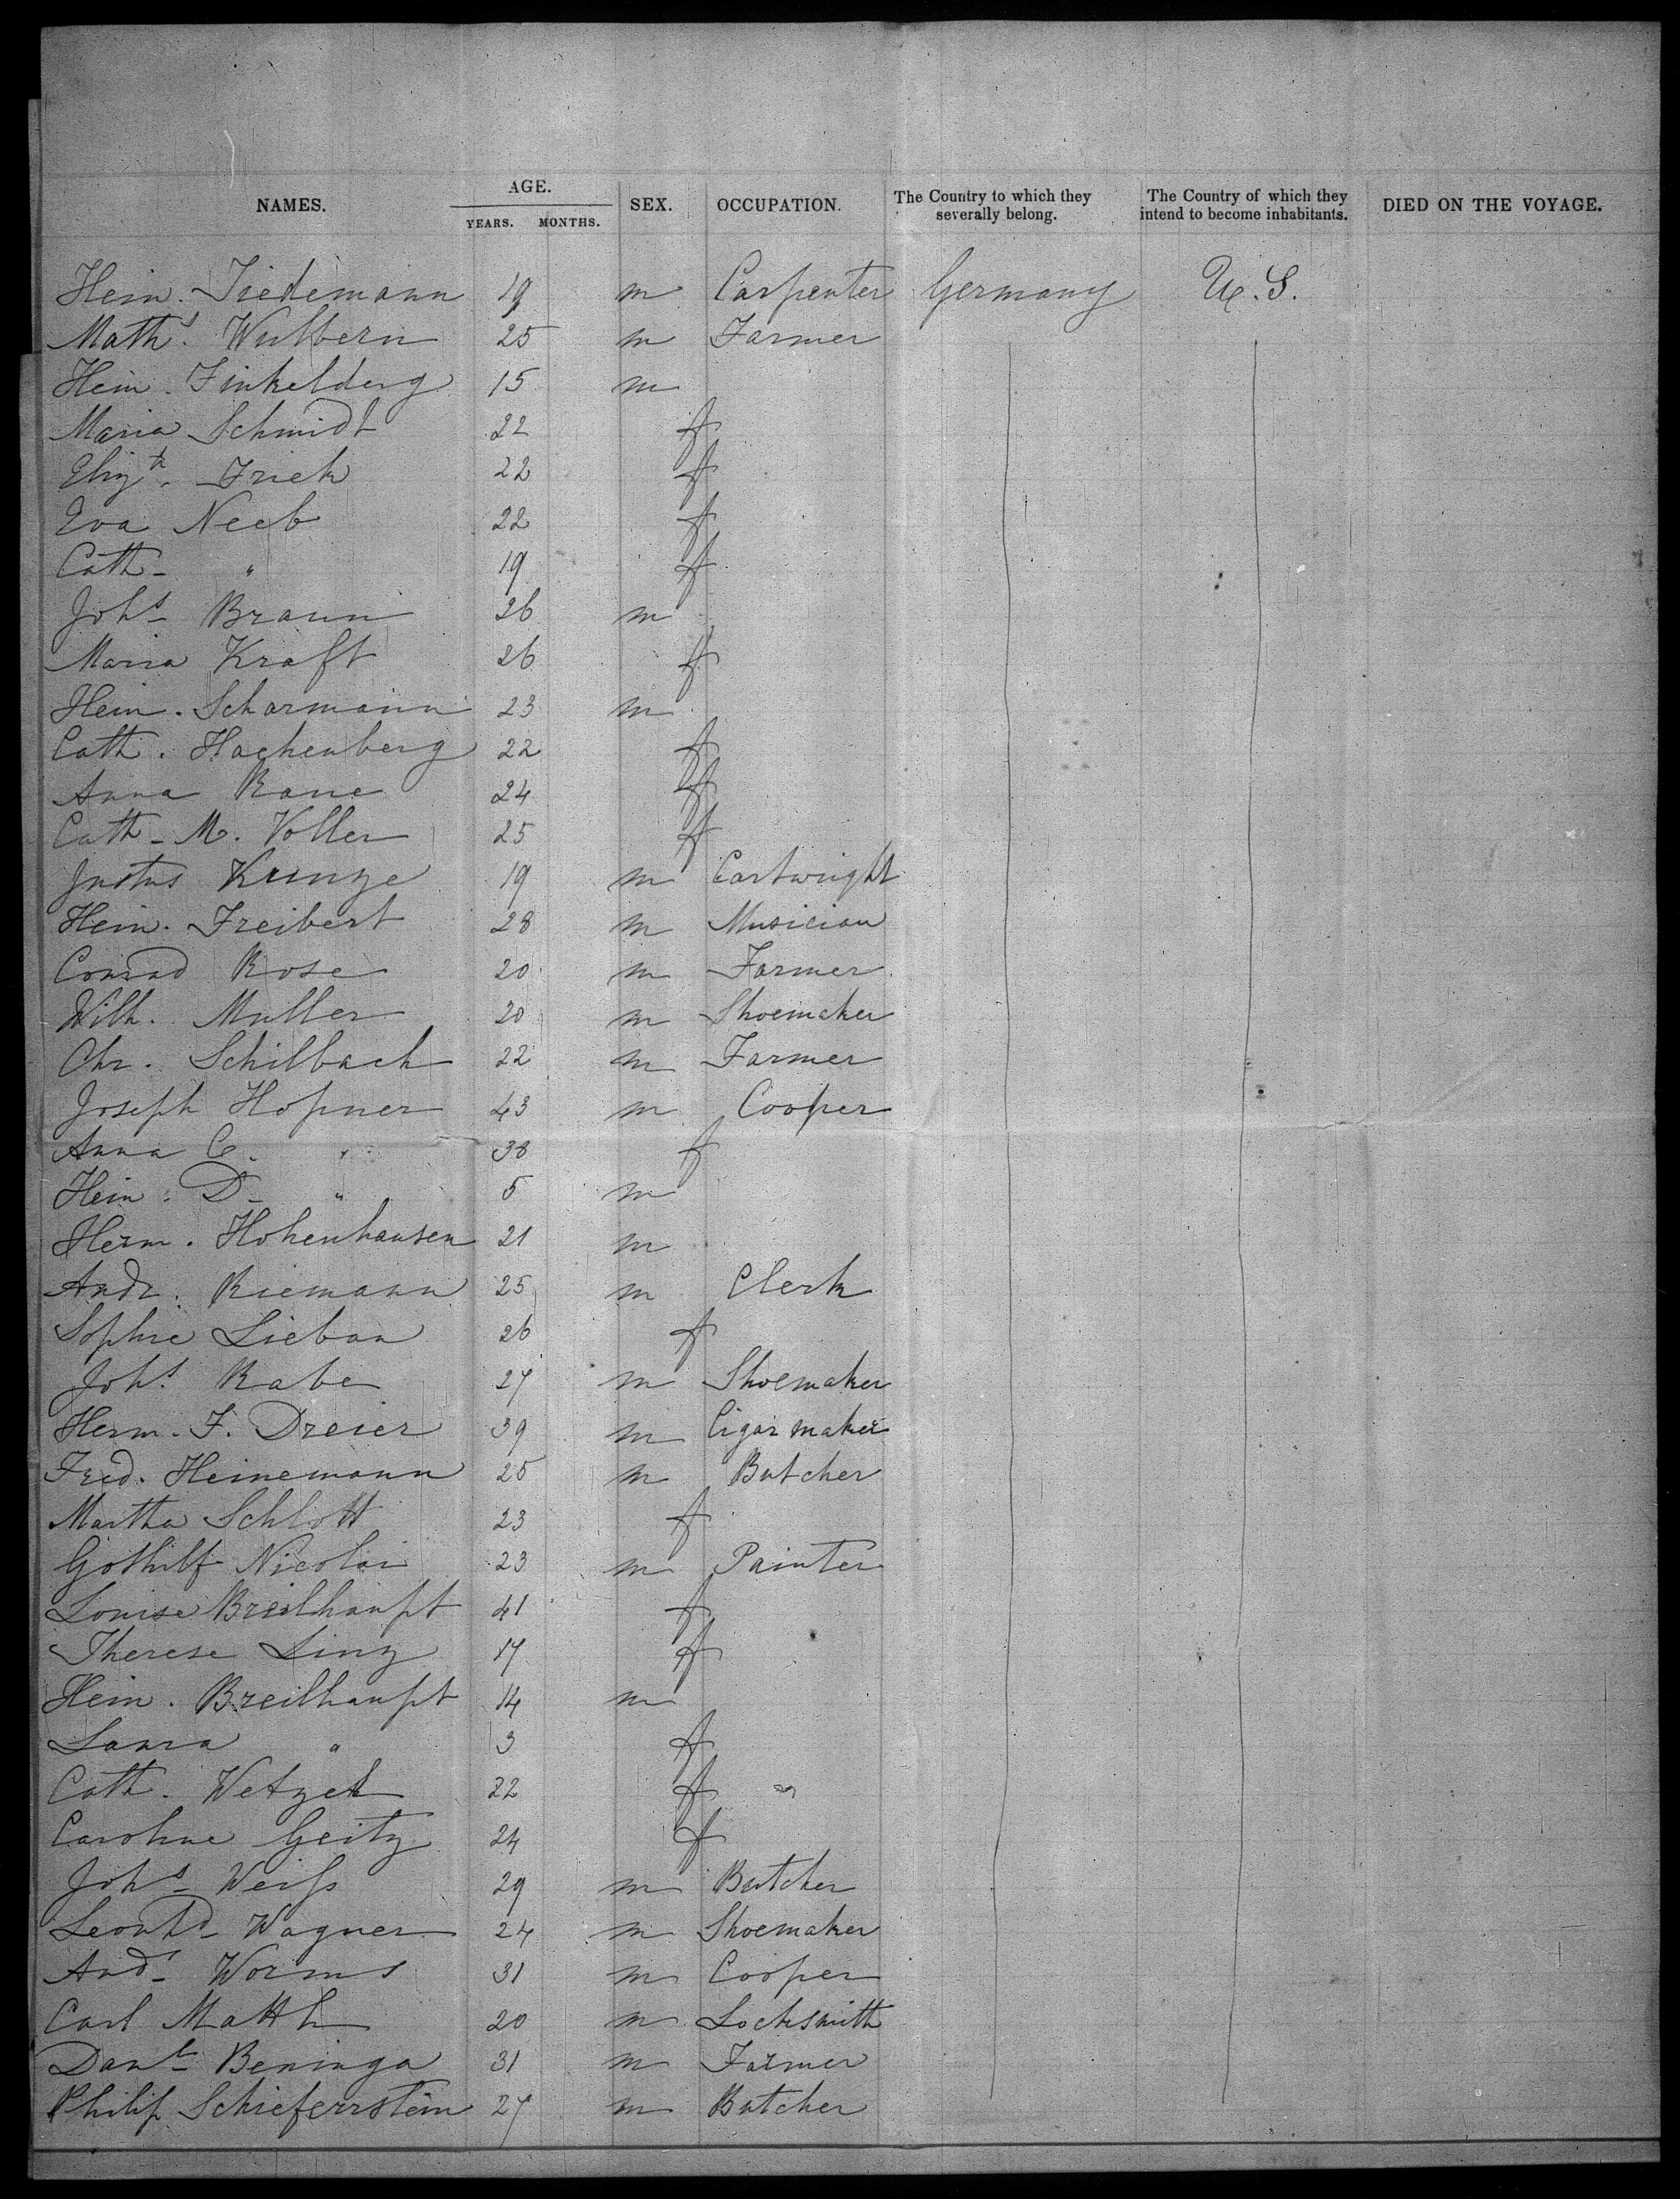 NAMES. AGE. YEARS. MONTHS. SEX. OCCUPATION. The Country to which they severally belong. The Country of which they intend to become inhabitants. DIED ON THE VOYAGE.
Hein. Tiedemann 19 m Carpenter Germany U.S.
Maths. Wulbern 25 m Farmer
Hein. Finkelderg 15 m
Maria Schmidt 22 f
Elizth. Frick 22 f
Eva Neeb 22 f
Cath. " 19 f
Johs. Braun 26 m
Maria Kraft 26 f
Hein. Scharmann 23 m
Cath. Hachenberg 22 f
Anna 24 f
Cath. M. Voller 25 f
Justus Kunze 19 m Cartwright
Hein. Freibert 28 m Musician
Conrad Rose 20 m Farmer
Wilh. Muller 20 m Shoemaker
Chr. Schilbach 22 m Farmer
Joseph Hopner 43 m Cooper
Anna C. " 38 f
Hein. D. " 5 m
Herm. Hohenhausen 21 m
Andr. Riemann 25 m Clerk
Sophie Liebau 26 f
Johs. Rabe 27 m Shoemaker
Herm. F. Dreier 39 m Cigar maker
Fred. Heinemann 25 m Butcher
Martha Schlott 23 f
Gothilf Nicolai 23 m Painter
Louise Breilhaupt 41 f
Therese Linz 17 f
Hein. Breilhaupt 14 m
Laura " 3 f
Cath. Wetzel 22 f
Caroline Geitz 24 f
Johs. Weiss 29 m Butcher
Leonhd. Wagner 24 m Shoemaker
Ands. Worms 31 m Cooper
Carl Matth 20 m Locksmith
Danl. Beninga 31 m Farmer
Philip Schieferrstein 27 m Butcher